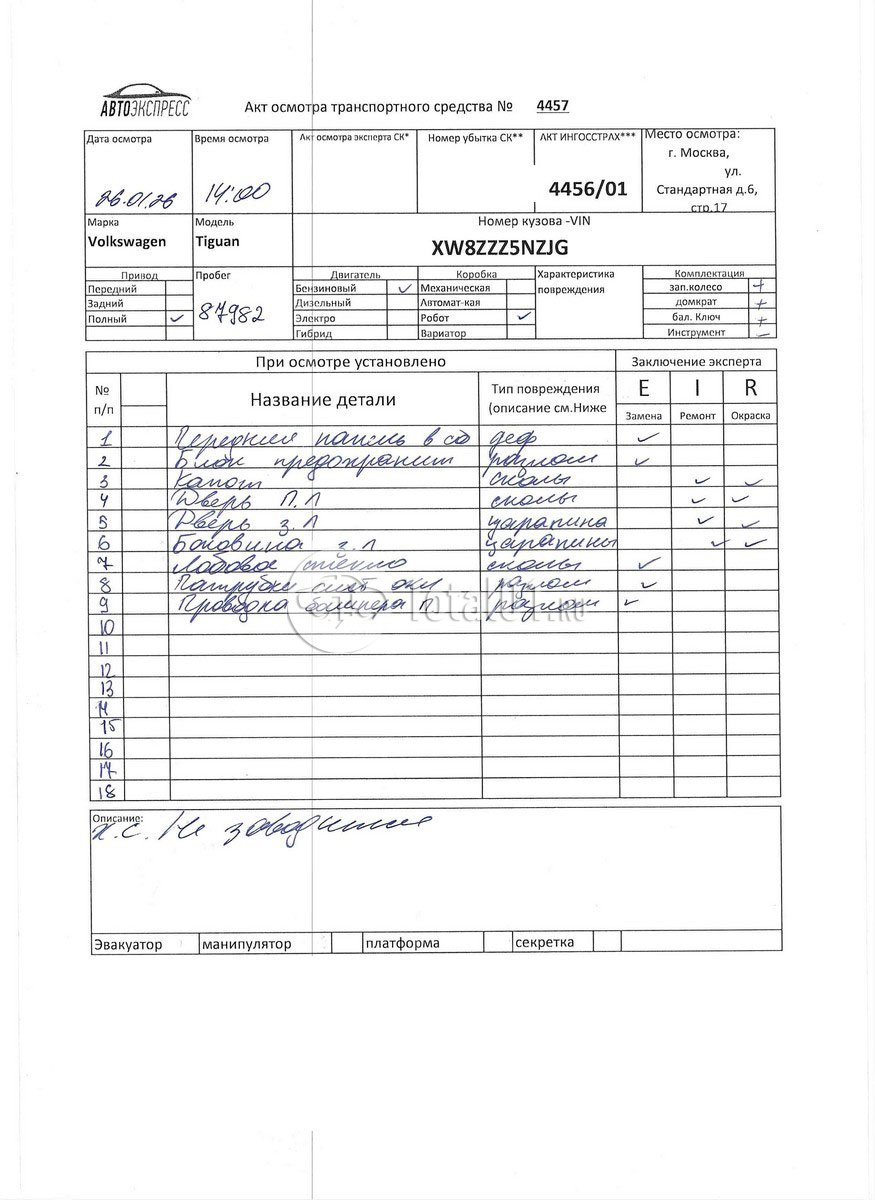 АВТОЭКСПРЕСС
Акт осмотра транспортного средства № 4457
Дата осмотра Время осмотра Акт осмотра эксперта СК* Номер убытка СК** АКТ ИНГОССТРАХ*** Место осмотра:
г. Москва,
ул.
26.01.26 14:00 4456/01 Стандартная д.6,
стр.17
Марка Модель Номер кузова -VIN
Volkswagen Tiguan XW8ZZZ5NZJG
Привод Пробег Двигатель Коробка Характеристика Комплектация
Передний Бензиновый ✓ Механическая повреждения зап.колесо +
Задний Дизельный Автомат-кая домкрат +
Полный ✓ 87982 Электро Робот ✓ бал. Ключ +
Гибрид Вариатор Инструмент –
При осмотре установлено Заключение эксперта
№ п/п Название детали Тип повреждения E I R
(описание см.Ниже Замена Ремонт Окраска
1 Передняя панель в сб деф ✓
2 Блок предохранит разлом ✓
3 Капот сколы ✓ ✓
4 Дверь П.Л сколы ✓ ✓
5 Дверь з.Л царапина ✓ ✓
6 Боковина з.Л царапины ✓ ✓
7 Лобовое стекло сколы ✓
8 Патрубки сист охл разлом ✓
9 Проводка бампера П разлом ✓
10
11
12
13
14
15
16
17
18
Описание:
х.с. Не заводится
Эвакуатор манипулятор платформа секретка
Total01.RU